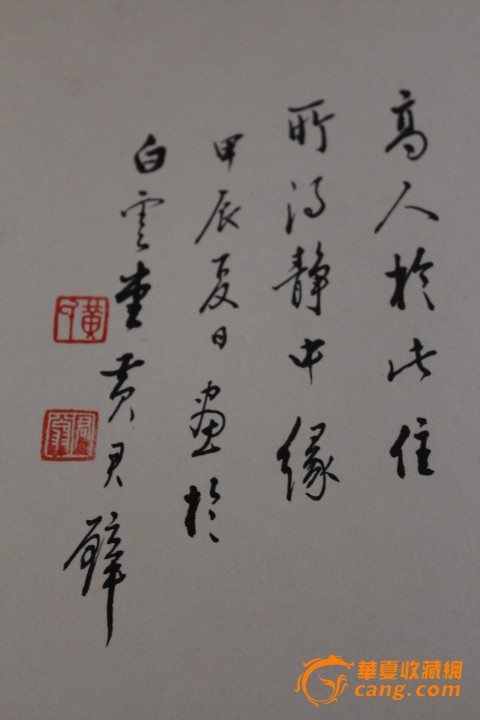 高人於此住
所得靜中緣
甲辰夏日畫於
白雲堂黃君璧
華夏收藏網
cang.com